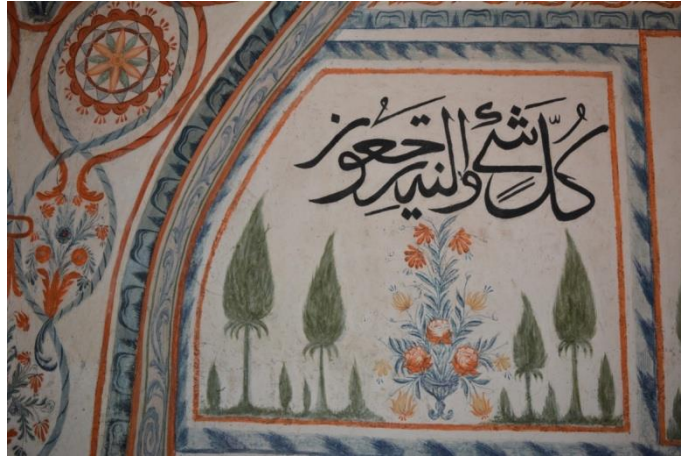 كُلَّ شَئٍ واليه ترجعون